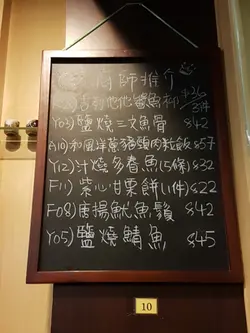 廚師推介
$26/3件
Y03) 鹽燒三文魚骨 $42
A10) 和風洋蔥豬頸肉粒飯 $57
Y12) 汁燒多春魚(5條) $32
F11) 紫心甘栗餅(1件) $22
F08) 唐揚魷魚鬚 $42
Y05) 鹽燒鯖魚 $45
10